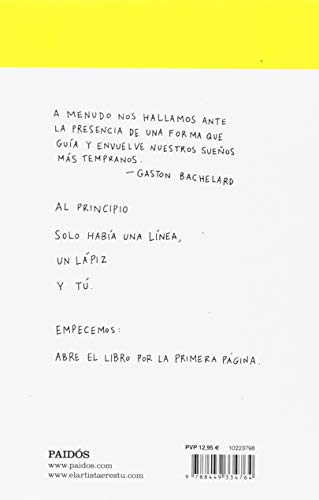 A MENUDO NOS HALLAMOS ANTE
LA PRESENCIA DE UNA FORMA QUE
GUÍA Y ENVUELVE NUESTROS SUEÑOS
MÁS TEMPRANOS.
—GASTON BACHELARD
AL PRINCIPIO
SOLO HABÍA UNA LÍNEA,
UN LÁPIZ
Y TÚ.
EMPECEMOS:
ABRE EL LIBRO POR LA PRIMERA PÁGINA.
PAIDÓS
www.paidos.com
www.elartistaerestu.com
PVP 12,95 € 10223798
9 788449 334764